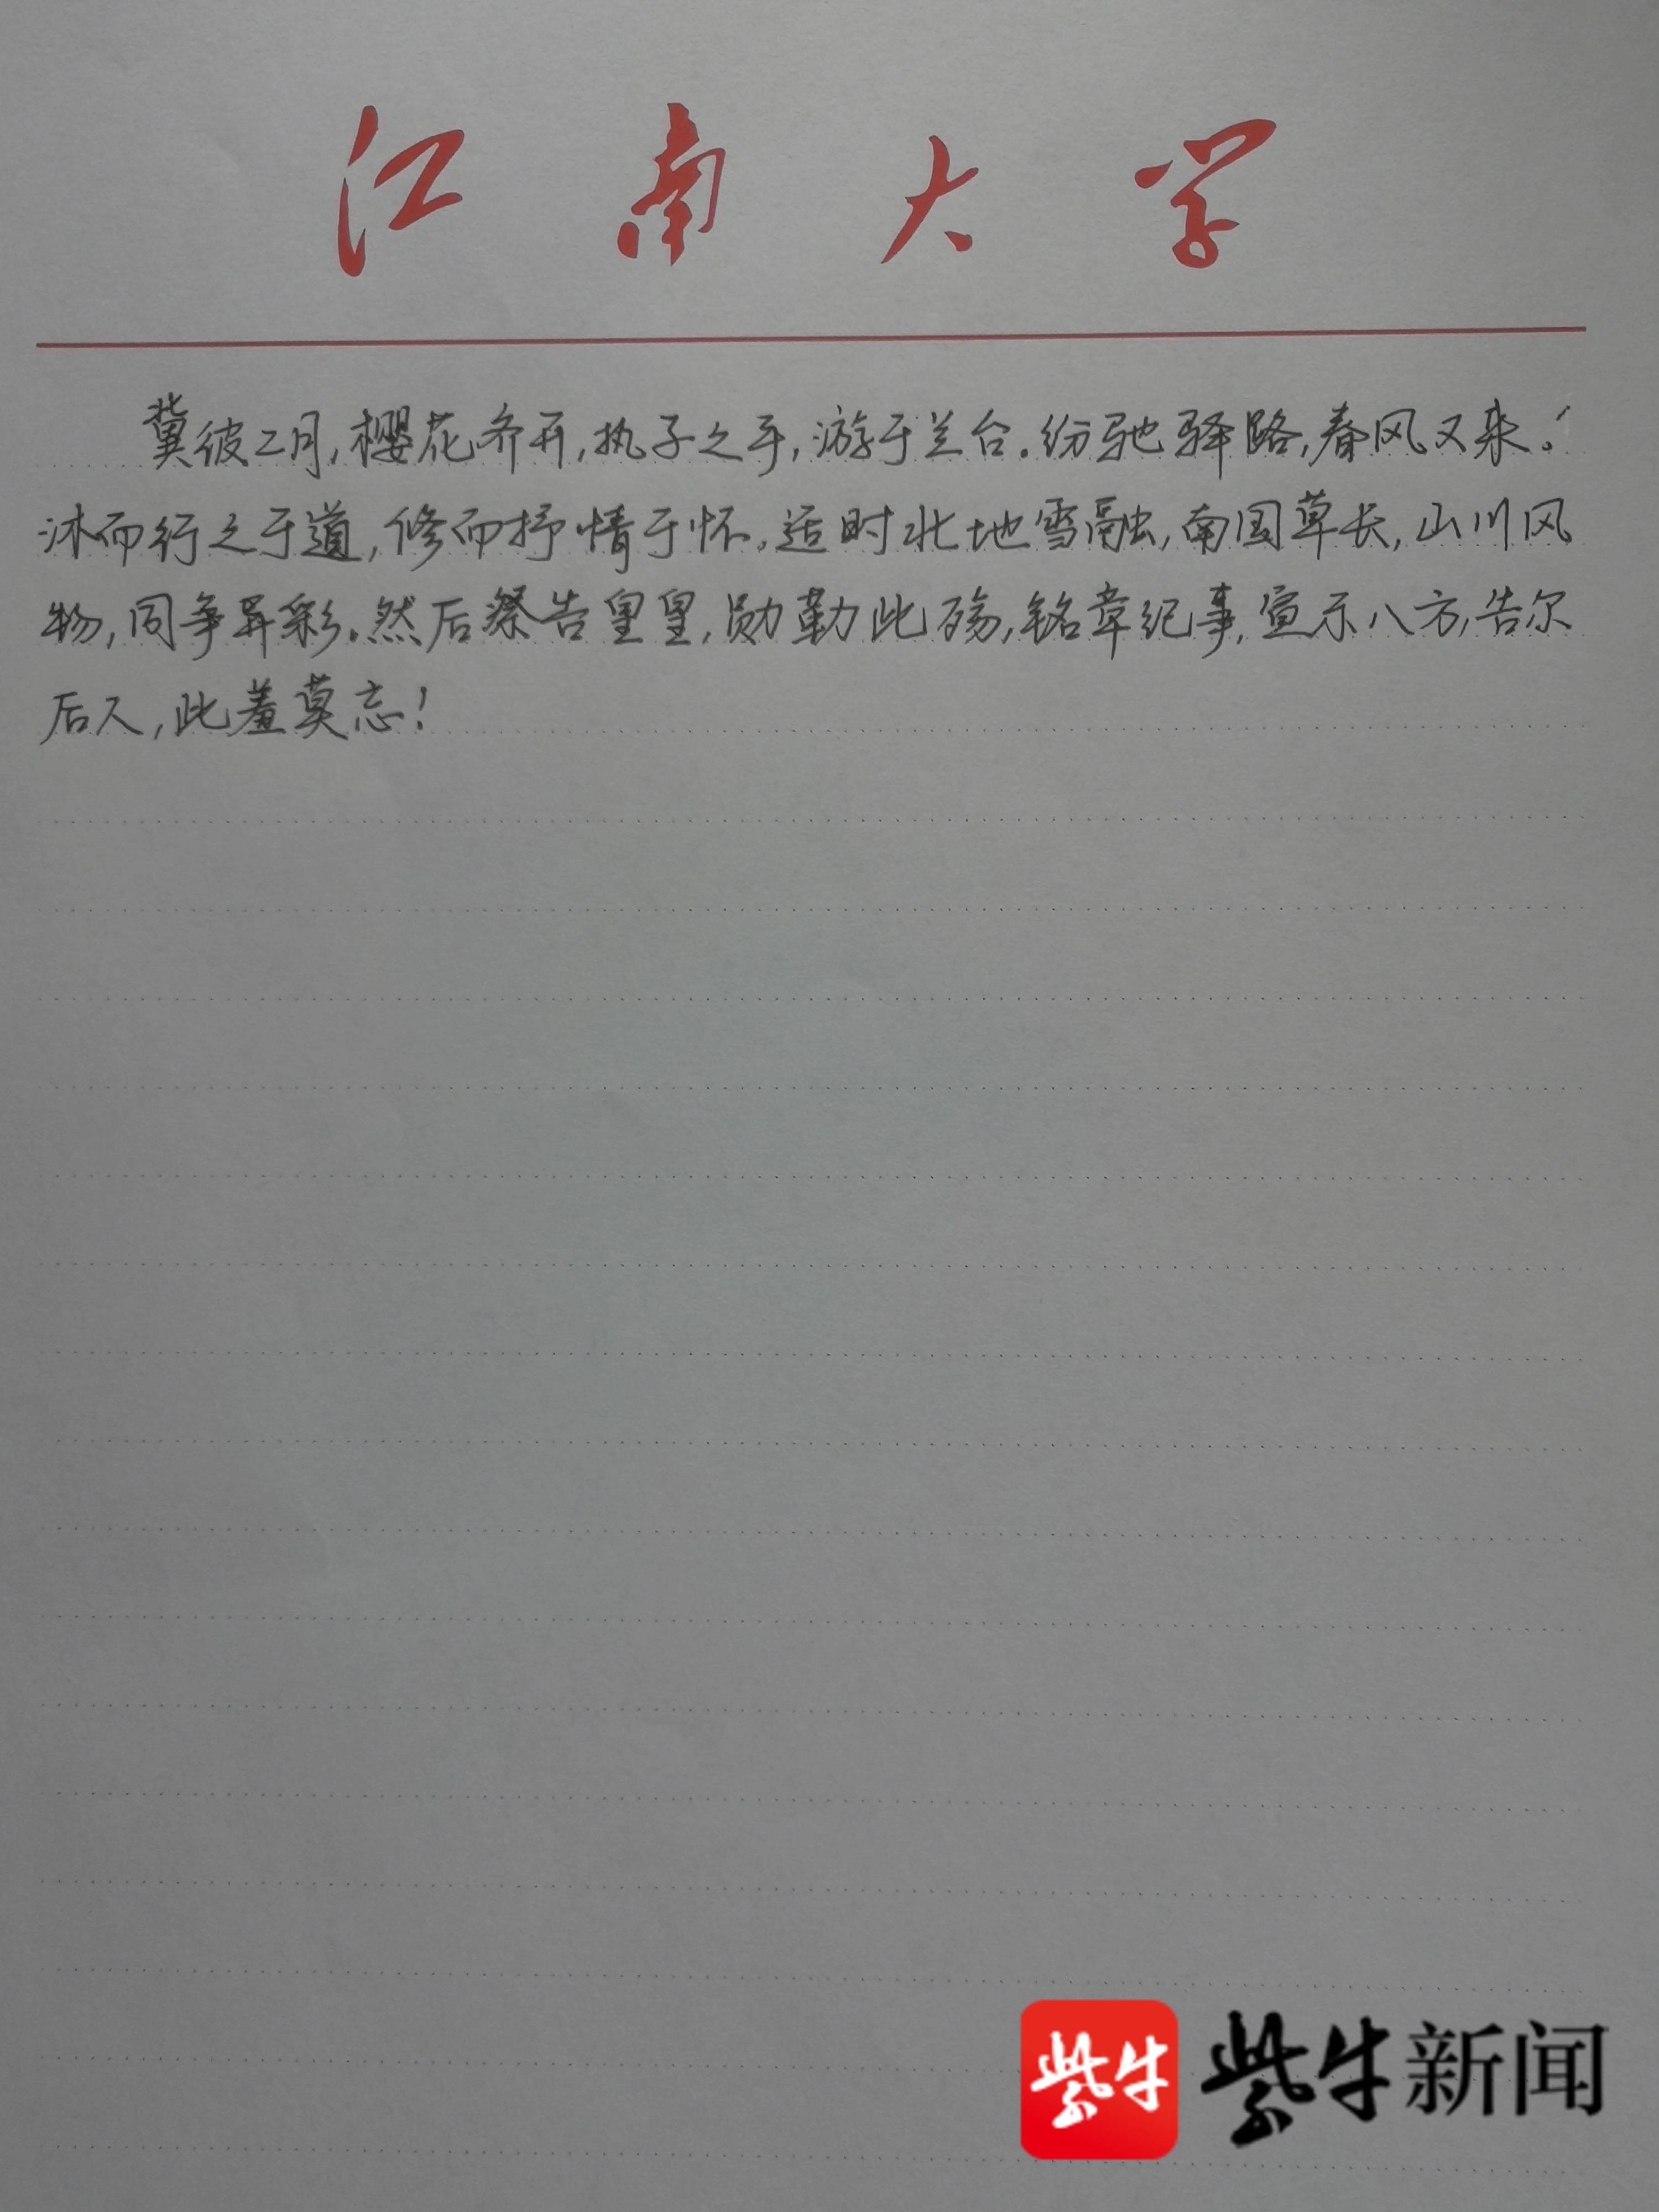 江南大学
冀彼二月,樱花齐开,执子之手,游于兰台.纷驰驿路,春风又来.
沐而行之于道,修而抒情于怀.适时北地雪融,南国草长,山川风
物,同争异彩.然后祭告皇皇,勋勒此殇,铭章纪事,宣示八方,告尔
后人,此羞莫忘!
紫牛 紫牛新闻